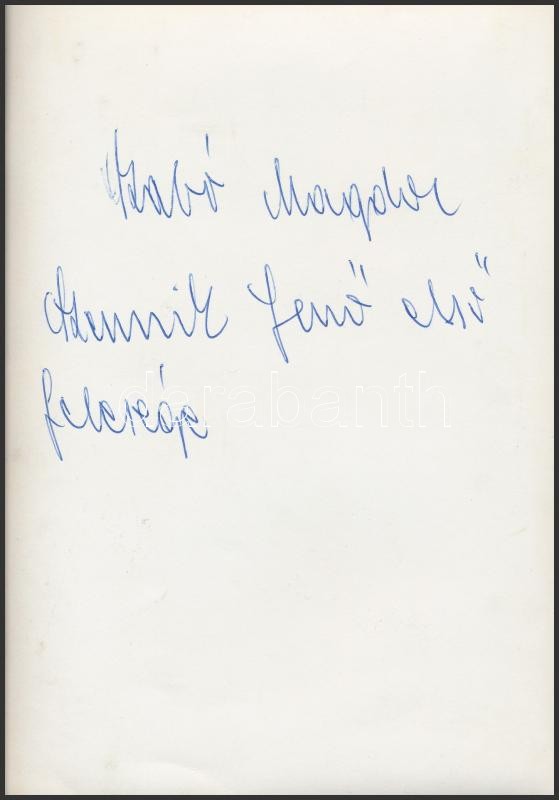 Szabó Magda
Szennik Jenő első
felesége
darabanth